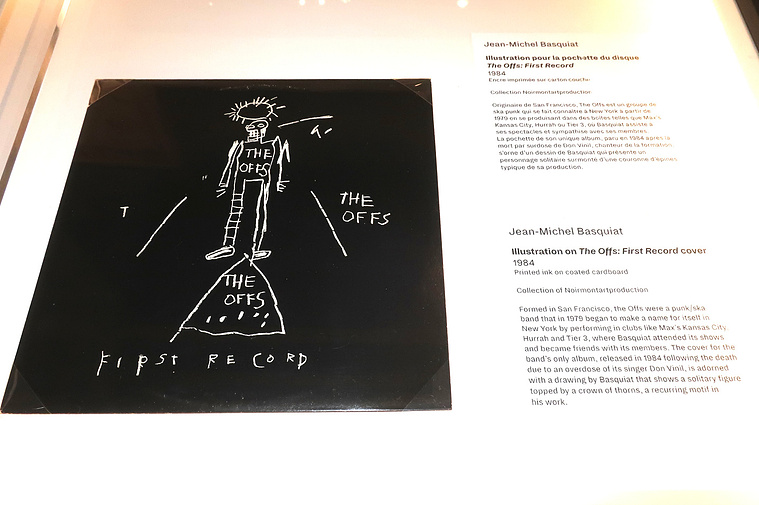 THE
OFFS
T
THE
OFFS
THE
OFFS
FIRST RECORD
Jean-Michel Basquiat
Illustration pour la pochette du disque
The Offs: First Record
1984
Encre imprimée sur carton couché
Collection Noirmontartproduction
Originaire de San Francisco, The Offs est un groupe de
ska punk qui se fait connaître à New York à partir de
1979 en se produisant dans des boîtes telles que Max's
Kansas City, Hurrah ou Tier 3, où Basquiat assiste à
ses spectacles et sympathise avec ses membres.
La pochette de son unique album, paru en 1984 après la
mort par surdose de Don Vinil, chanteur de la formation,
s'orne d'un dessin de Basquiat qui présente un
personnage solitaire surmonté d'une couronne d'épines
typique de sa production.
Jean-Michel Basquiat
Illustration on The Offs: First Record cover
1984
Printed ink on coated cardboard
Collection of Noirmontartproduction
Formed in San Francisco, the Offs were a punk/ska
band that in 1979 began to make a name for itself in
New York by performing in clubs like Max's Kansas City,
Hurrah and Tier 3, where Basquiat attended its shows
and became friends with its members. The cover for the
band's only album, released in 1984 following the death
due to an overdose of its singer Don Vinil, is adorned
with a drawing by Basquiat that shows a solitary figure
topped by a crown of thorns, a recurring motif in
his work.